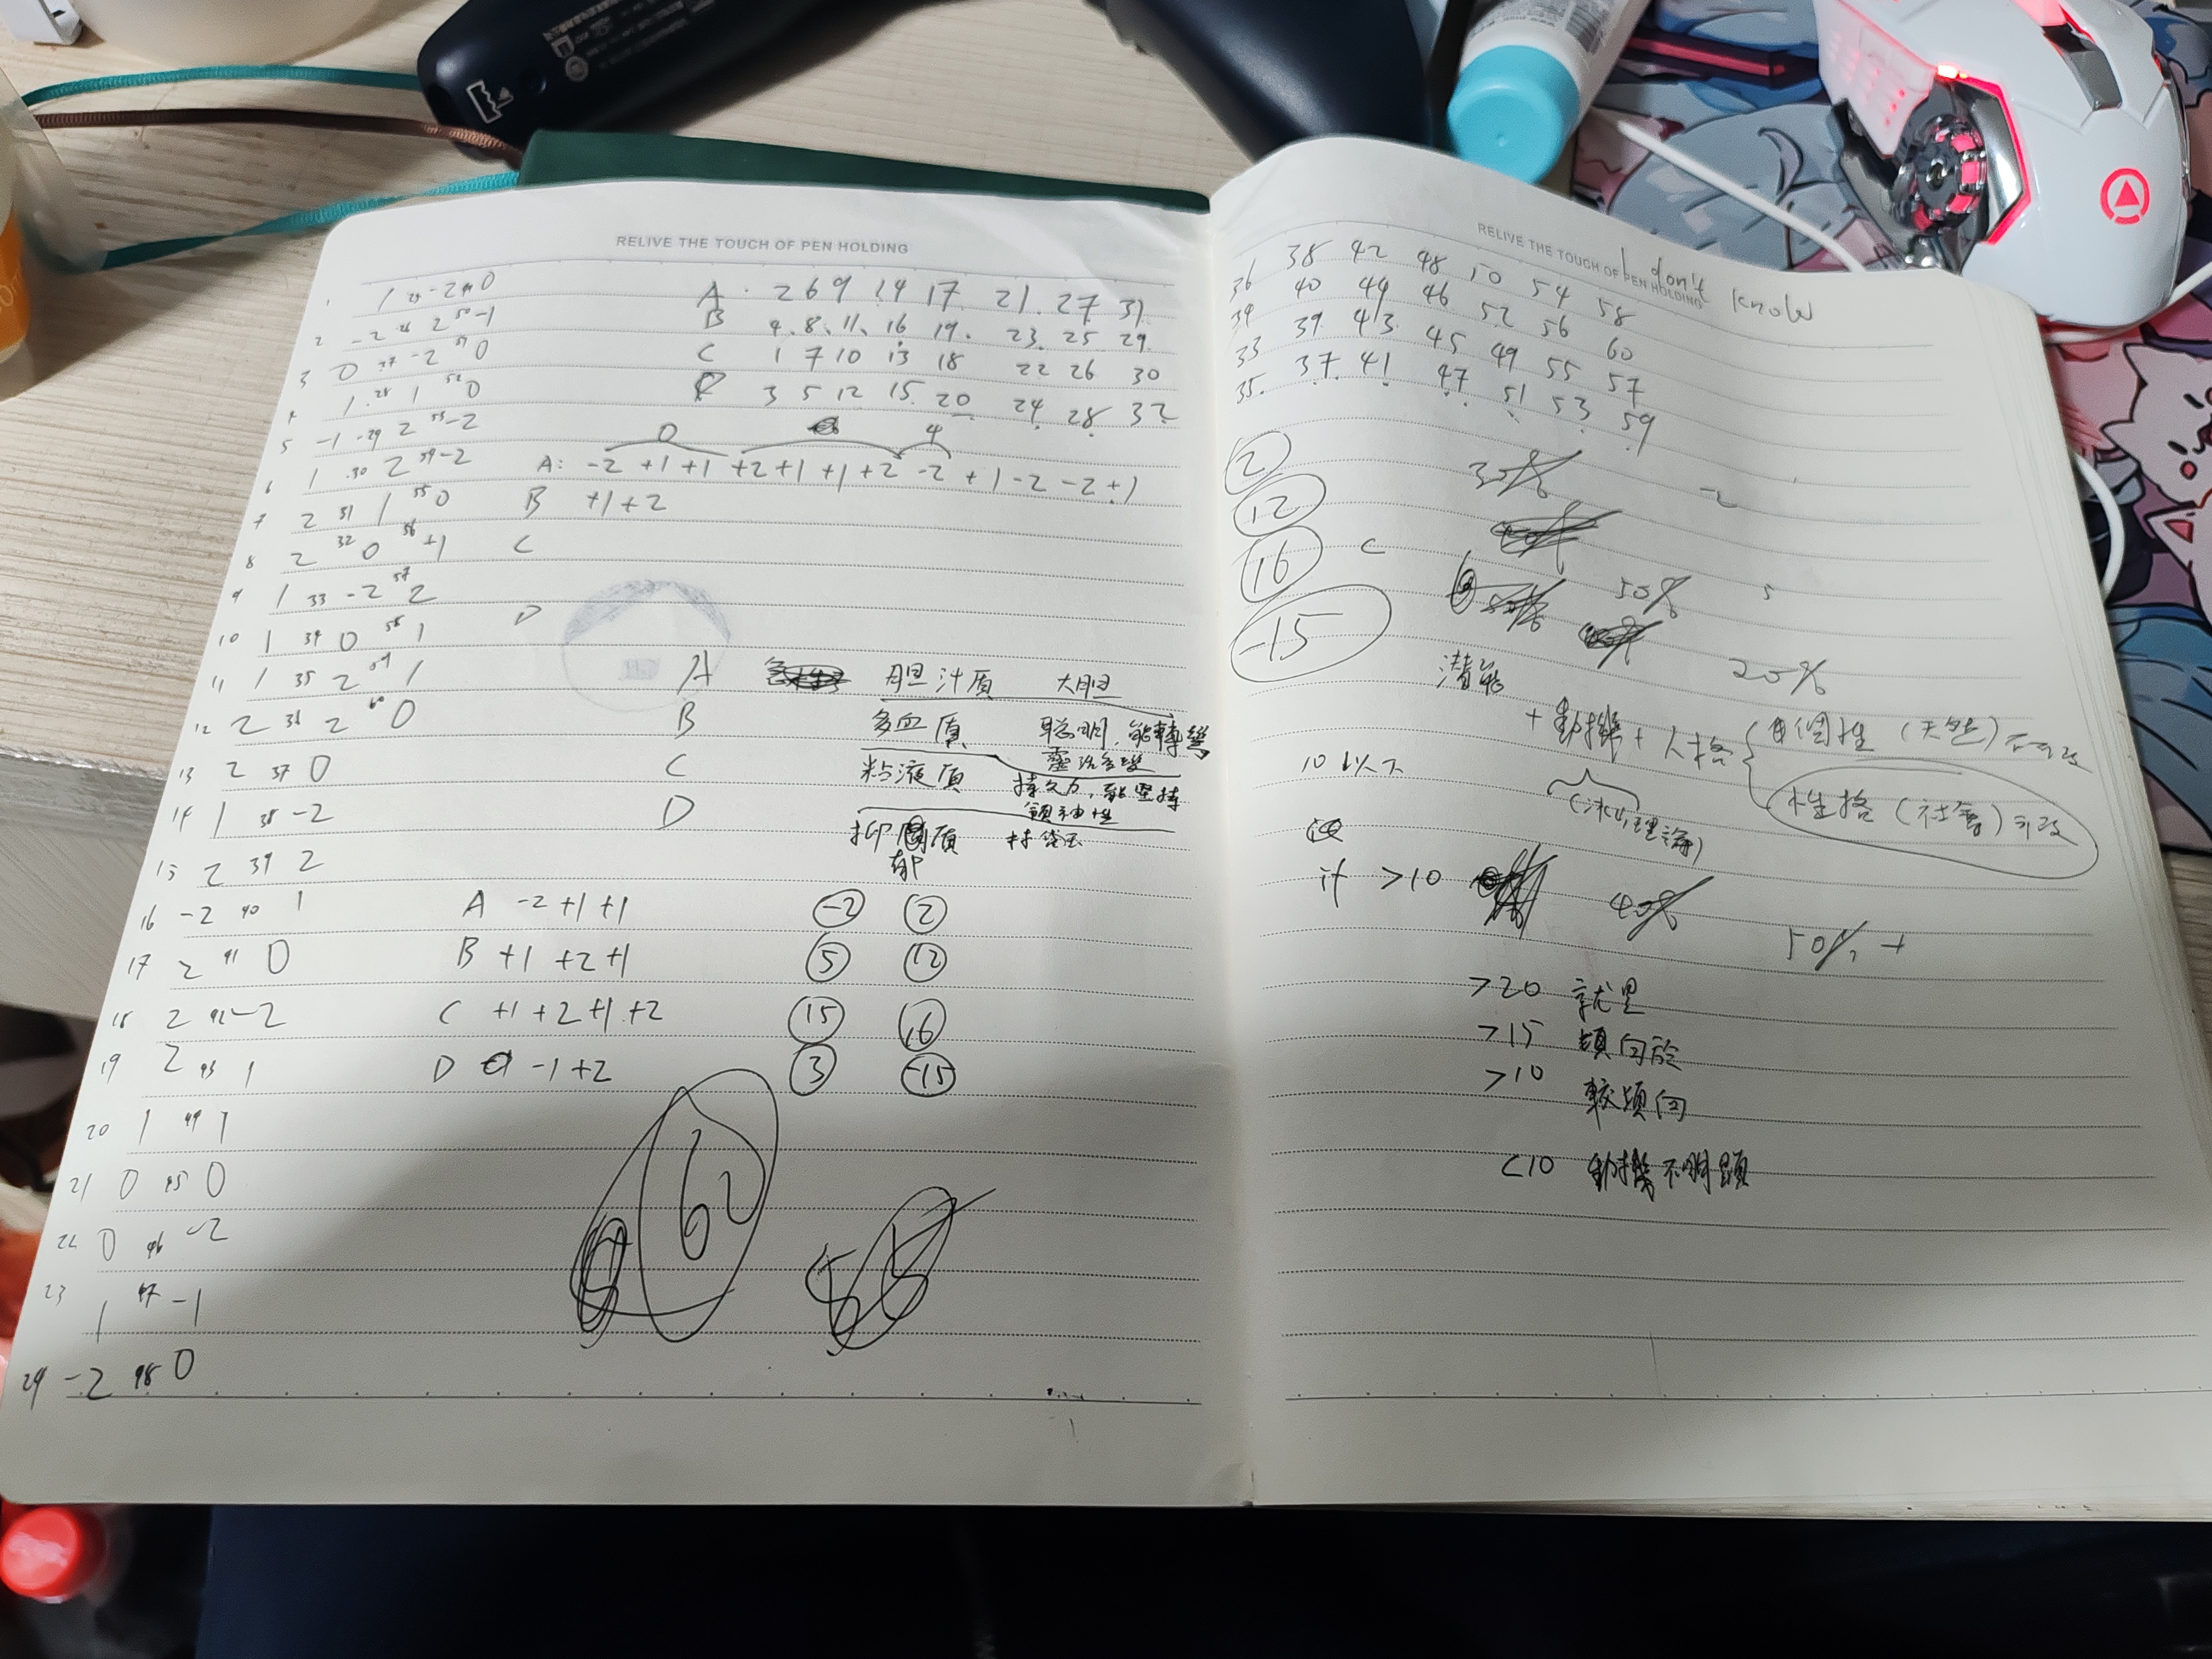 RELIVE THE TOUCH OF PEN HOLDING
1 1 25 -2 49 0
2 -2 26 2 50 -1
3 0 27 -2 51 0
4 1 28 1 52 0
5 -1 29 2 53 -2
6 1 30 2 54 -2
7 2 31 1 55 0
8 2 32 0 56 +1
9 1 33 -2 57 2
10 1 34 0 58 1
11 1 35 2 59 1
12 2 36 2 60 0
13 2 37 0
14 1 38 -2
15 2 39 2
16 -2 40 1
17 2 41 0
18 2 42 -2
19 2 43 1
20 1 44 1
21 0 45 0
22 0 46 -2
23 1 47 -1
24 -2 48 0
A 2 6 9 14 17 21 27 31
B 4 8 11 16 19 23 25 29
C 1 7 10 13 18 22 26 30
3 5 12 15 20 24 28 32
0 4
A: -2 +1 +1 +2 +1 +1 +2 -2 +1 -2 -2 +1
B +1 +2
C
D
A 胆汁质 大胆
B 多血质 聪明,能轉彎
靈活多變
C 粘液质 持久力,能坚持
領袖性
D 抑郁质
A -2 +1 +1 -2 2
B +1 +2 +1 5 12
C +1 +2 +1 +2 15 16
D -1 +2 3 -15
62
RELIVE THE TOUCH OF PEN HOLDING
I don't know
36 38 42 48 50 54 58
34 40 44 46 52 56 60
33 39 43 45 49 55 57
35 37 41 47 51 53 59
2
12
16 C
-15
30% -2
50% 5
20%
潜能
+動機+人格 個性(天生)不可改
性格(社會)可改
(冰山理論)
10 以下
if >10 40% 50% +
>20 就是
>15 傾向於
>10 較傾向
<10 動機不明顯